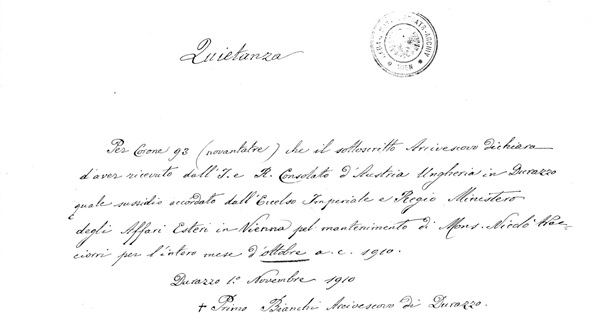 Quietanza
WIEN
Per Corone 93 (novantatre) che il sottoscritto Arcivescovo dichiara
d'aver ricevuto dall'I. e R. Consolato d'Austria Ungheria in Durazzo
quale sussidio accordato dall'Eccelso Imperiale e Regio Ministero
degli Affari Esteri in Vienna pel mantenimento di Mons. Nicolò
ciorri per l'intero mese d'ottobre a. c. 1910.
Durazzo 1º Novembre 1910
+ Primo Bianchi Arcivescovo di Durazzo.